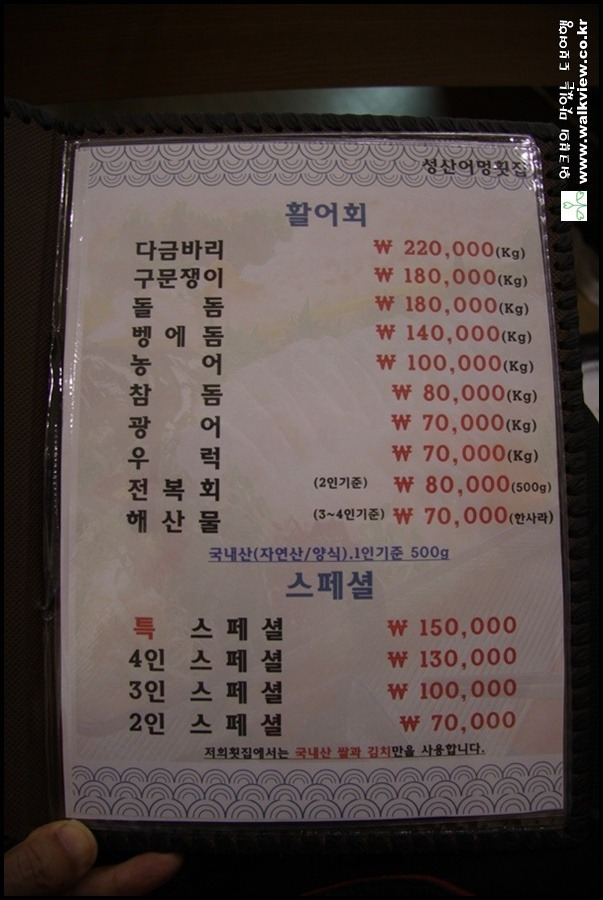 성산어멍횟집
활어회
다금바리 ₩ 220,000(Kg)
구문쟁이 ₩ 180,000(Kg)
돌 돔 ₩ 180,000(Kg)
벵에돔 ₩ 140,000(Kg)
농 어 ₩ 100,000(Kg)
참 돔 ₩ 80,000(Kg)
광 어 ₩ 70,000(Kg)
우 럭 ₩ 70,000(Kg)
전복회 (2인기준) ₩ 80,000(500g)
해산물 (3~4인기준) ₩ 70,000(한사라)
국내산(자연산/양식).1인기준 500g
스페셜
특 스페셜 ₩ 150,000
4인 스페셜 ₩ 130,000
3인 스페셜 ₩ 100,000
2인 스페셜 ₩ 70,000
저희횟집에서는 국내산 쌀과 김치만을 사용합니다.
www.walkview.co.kr